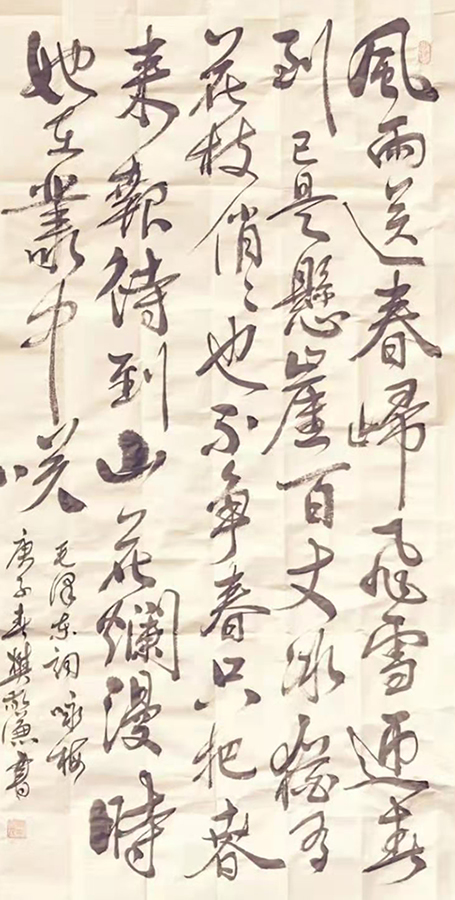 風雨送春歸飛雪迎春
到已是懸崖百丈冰猶有
花枝俏〻也不爭春只把春
來報待到山花爛漫時
她在叢中咲
毛澤東詞咏梅
庚子春樊書